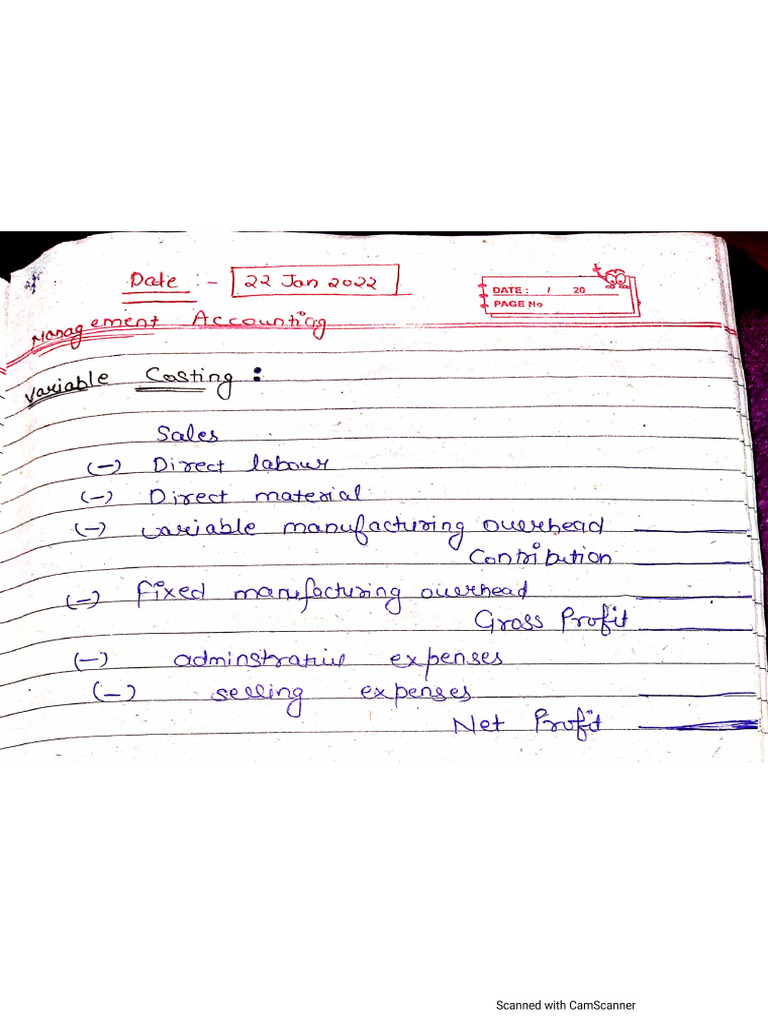 Date :- 22 Jan 2022
DATE : / 20
PAGE No
Management Accounting
Variable Costing :
Sales
(-) Direct labour
(-) Direct material
(-) variable manufacturing overhead
Contribution
(-) Fixed manufacturing overhead
Gross Profit
(-) adminstrative expenses
(-) selling expenses
Net Profit
Scanned with CamScanner